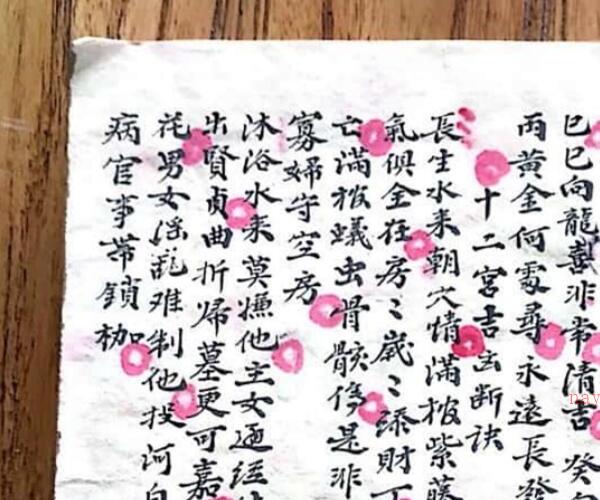 巳巳向龍喜非常清吉癸
兩黃金何處尋永遠長發
十二宮吉凶断訣
長生水来朝穴情滿棺紫藤
氣俱全在房〻歲〻添財丁
亡滿棺蟻虫骨骸俱是非
寡婦守空房
沐浴水来莫嫌他主女逥经
出賢貞曲折歸墓更可嘉
花男女淫乱难制他投河自
病官事带鎖枷